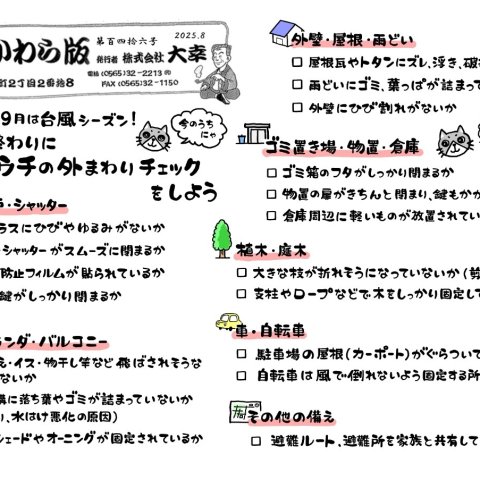 かわら版
第百四拾六号
2025.8
発行者 株式会社 大幸
町2丁目2番拾8
電話(0565)32-2213㈹
FAX(0565)32-1150
9月は台風シーズン!
終わりに
ウチの外まわりチェック
をしよう
今のうちにゃ
・シャッター
ラスにひびやゆるみがないか
・シャッターがスムーズに閉まるか
防止フィルムが貼られているか
鍵がしっかり閉まるか
ランダ・バルコニー
・イス・物干し竿など飛ばされそうな
ないか
に落ち葉やゴミが詰まっていないか
、水はけ悪化の原因)
シェードやオーニングが固定されているか
外壁・屋根・雨どい
□ 屋根瓦やトタンにズレ、浮き、破
□ 雨どいにゴミ、葉っぱが詰まって
□ 外壁にひび割れがないか
ゴミ置き場・物置・倉庫
□ ゴミ箱のフタがしっかり閉まるか
□ 物置の扉がきちんと閉まり、鍵もかか
□ 倉庫周辺に軽いものが放置されてい
植木・庭木
□ 大きな枝が折れそうになっていないか(剪
□ 支柱やロープなどで木をしっかり固定して
車・自転車
□ 駐車場の屋根(カーポート)がぐらついて
□ 自転車は風で倒れないよう固定する所
その他の備え
□ 避難ルート、避難所を家族と共有して